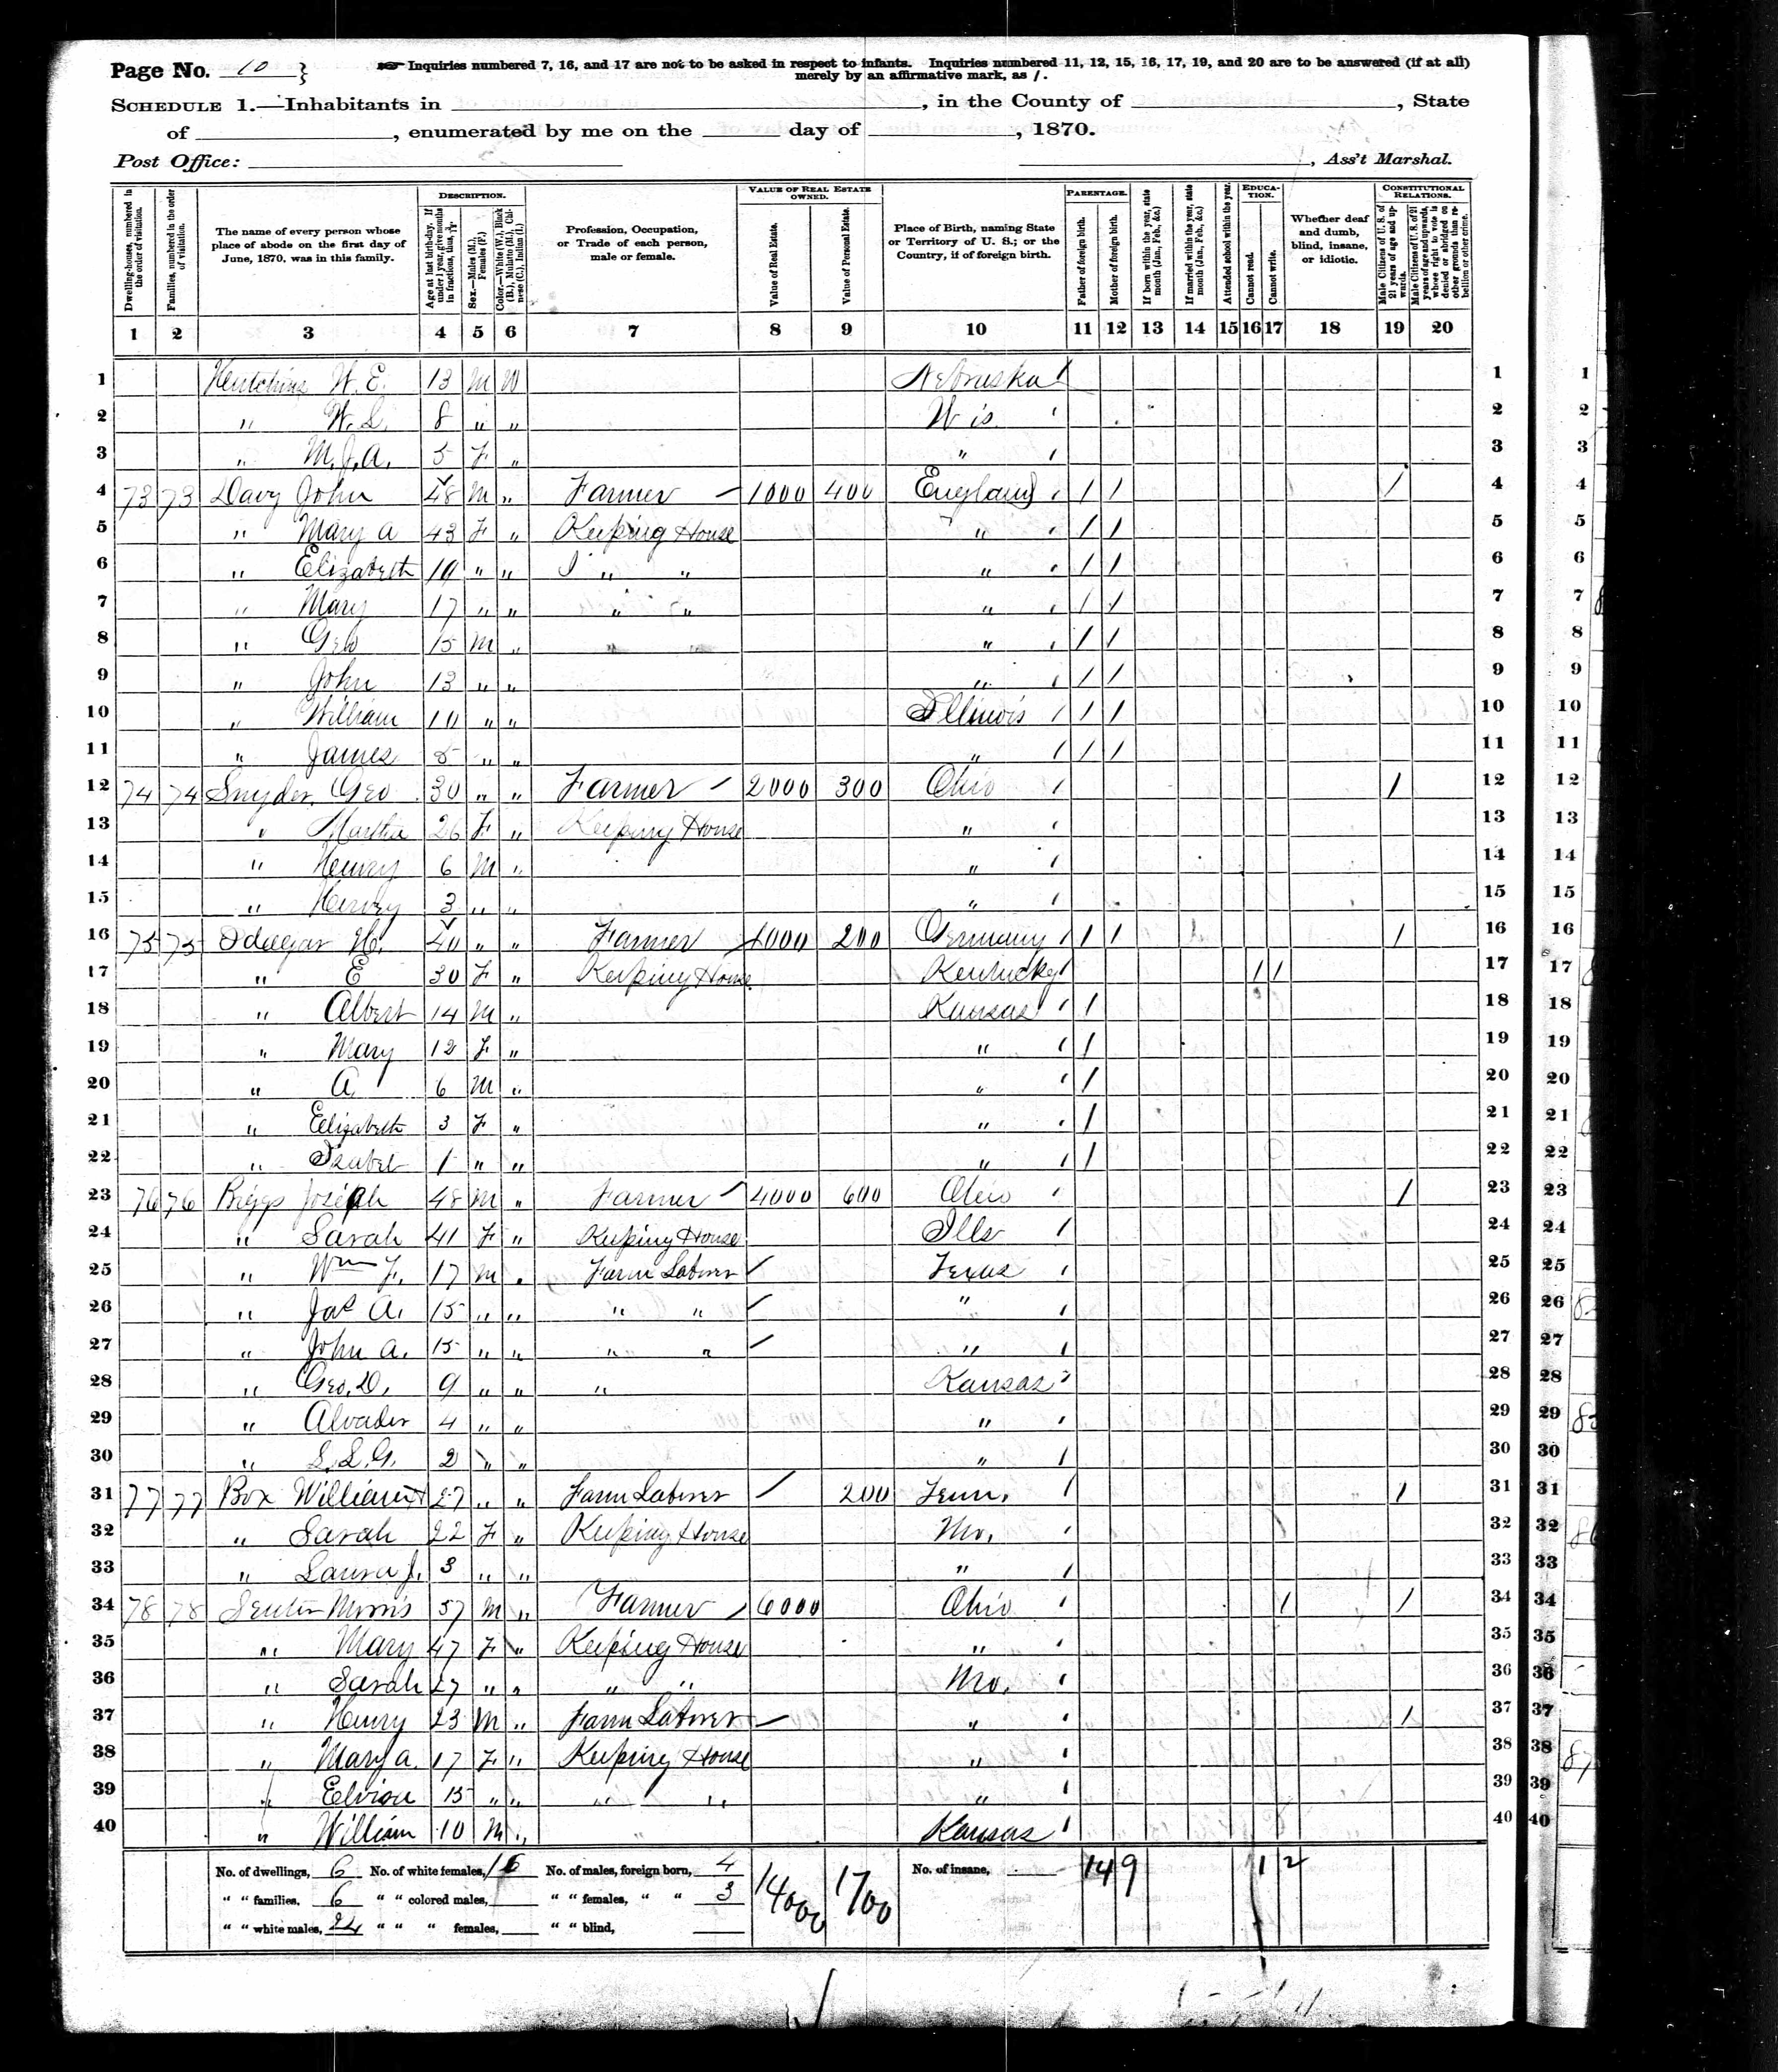 Page No. 10 }
Inquiries numbered 7, 16, and 17 are not to be asked in respect to infants. Inquiries numbered 11, 12, 15, 16, 17, 19, and 20 are to be answered (if at all)
merely by an affirmative mark, as /.
SCHEDULE 1.—Inhabitants in , in the County of , State
of , enumerated by me on the day of , 1870.
Post Office: , Ass't Marshal.
Dwelling-houses, numbered in the order of visitation.
Families, numbered in the order of visitation.
The name of every person whose place of abode on the first day of June, 1870, was in this family.
DESCRIPTION.
Age at last birth-day. If under 1 year, give months in fractions, thus, 3/12
Sex.—Males (M.), Females (F.)
Color.—White (W.), Black (B.), Mulatto (M.), Chinese (C.), Indian (I.)
Profession, Occupation, or Trade of each person, male or female.
VALUE OF REAL ESTATE OWNED.
Value of Real Estate.
Value of Personal Estate.
Place of Birth, naming State or Territory of U. S.; or the Country, if of foreign birth.
PARENTAGE.
Father of foreign birth.
Mother of foreign birth.
If born within the year, state month (Jan., Feb., &c.)
If married within the year, state month (Jan., Feb., &c.)
Attended school within the year.
EDUCATION.
Cannot read.
Cannot write.
Whether deaf and dumb, blind, insane, or idiotic.
CONSTITUTIONAL RELATIONS.
Male Citizens of U. S. of 21 years of age and upwards.
Male Citizens of U. S. of 21 years of age and upwards, whose right to vote is denied or abridged on other grounds than rebellion or other crime.
1 2 3 4 5 6 7 8 9 10 11 12 13 14 15 16 17 18 19 20
1 Hutchins W. E. 13 M W Nebraska / 1
2 " W. L. 8 " " Wis. 2
3 " M. J. A. 5 F " " 3
4 73 73 Davy John 48 M " Farmer 1000 400 England / / / 4
5 " Mary A 43 F " Keeping House " / / 5
6 " Elizabeth 19 " " " " " / / 6
7 " Mary 17 " " " " " / / 7
8 " Geo 15 M " " " " / / 8
9 " John 13 " " " / / 9
10 " William 10 " " Illinois / / 10
11 " James 5 " " " / / 11
12 74 74 Snyder Geo 30 " " Farmer 2000 300 Ohio / 12
13 " Martha 26 F " Keeping House " 13
14 " Henry 6 M " " 14
15 " Hervey 3 " " " 15
16 75 75 H. 40 " " Farmer 1000 200 Germany / / / 16
17 " E 30 F " Keeping House Kentucky / / 17
18 " Albert 14 M " Kansas / 18
19 " Mary 12 F " " / 19
20 " A 6 M " " / 20
21 " Elizabeth 3 F " " / 21
22 " Isabel 1 " " " / 22
23 76 76 Biggs Joseph 48 M " Farmer 4000 600 Ohio / 23
24 " Sarah 41 F " Keeping House Ills 24
25 " Wm F. 17 M " Farm Laborer Texas 25
26 " Jas A. 15 " " " " " 26
27 " John A. 15 " " " " " 27
28 " Geo. D. 9 " " " Kansas 28
29 " 4 " " " 29
30 " S. L. G. 2 " " " 30
31 77 77 Box William 27 " " Farm Laborer 200 Tenn. / 31
32 " Sarah 22 F " Keeping House Mo. 32
33 " Laura J. 3 " " " 33
34 78 78 Morris 57 M " Farmer 6000 Ohio / / 34
35 " Mary 47 F " Keeping House " 35
36 " Sarah 27 " " " " Mo. 36
37 " Henry 23 M " Farm Laborer " / 37
38 " Mary A. 17 F " Keeping House " 38
39 " 15 " " " " " 39
40 " William 10 M " " Kansas 40
No. of dwellings, 6 No. of white females, 16 No. of males, foreign born, 4 14000 1700 No. of insane, 14 9 1 2
" " families, 6 " " colored males, " " females, " " 3
" " white males, 24 " " " females, " " blind,